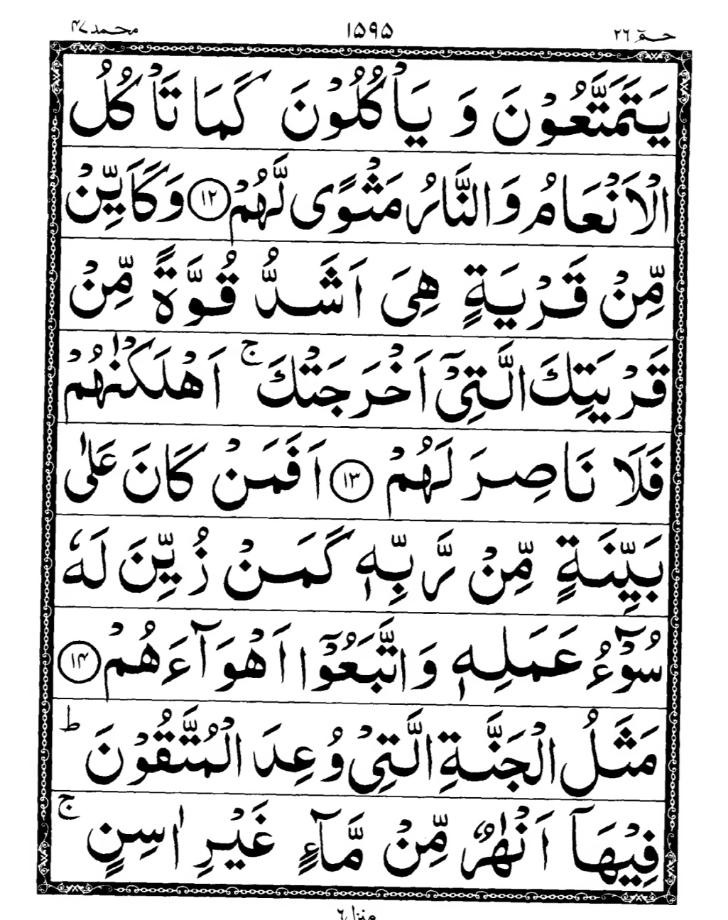 حٰمٓ ٢٦ ١٥٩٥ محمد ٤٧
يَتَمَتَّعُوْنَ وَ يَاْكُلُوْنَ كَمَا تَاْكُلُ
الْاَنْعَامُ وَالنَّارُ مَثْوًى لَّهُمْ ⑫ وَكَاَيِّنْ
مِّنْ قَرْيَةٍ هِيَ اَشَدُّ قُوَّةً مِّنْ
قَرْيَتِكَ الَّتِيْٓ اَخْرَجَتْكَ ۚ اَهْلَكْنٰهُمْ
فَلَا نَاصِرَ لَهُمْ ⑬ اَفَمَنْ كَانَ عَلٰى
بَيِّنَةٍ مِّنْ رَّبِّهٖ كَمَنْ زُيِّنَ لَهٗ
سُوْٓءُ عَمَلِهٖ وَاتَّبَعُوْٓا اَهْوَآءَهُمْ ⑭
مَثَلُ الْجَنَّةِ الَّتِيْ وُعِدَ الْمُتَّقُوْنَ ؕ
فِيْهَآ اَنْهٰرٌ مِّنْ مَّآءٍ غَيْرِ اٰسِنٍ ۚ
منزل ٦